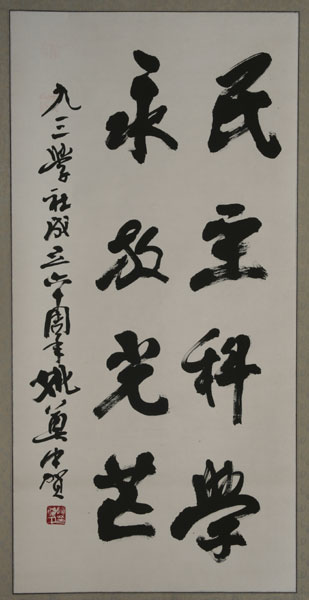 民主科學
永放光芒
九三學社成立六十周年姚奠中賀